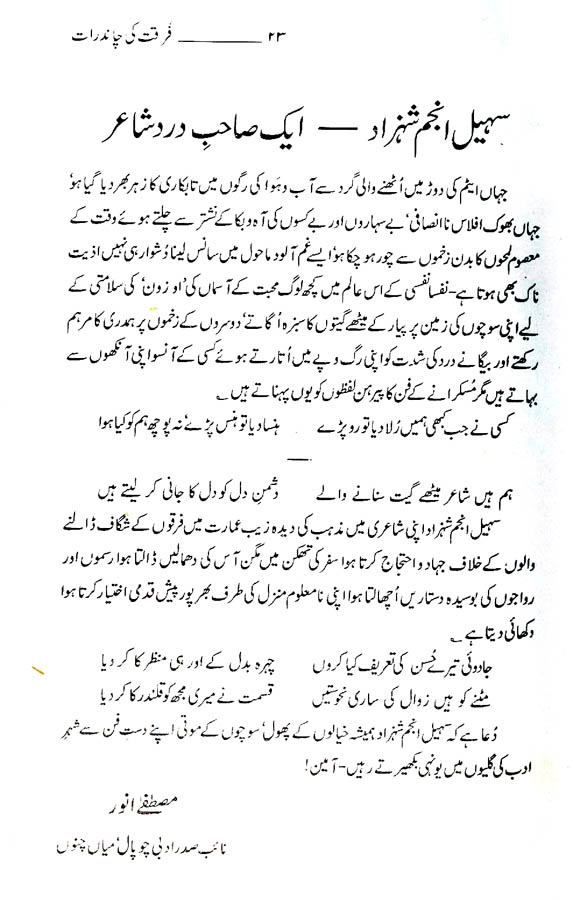 ۲۳ ———— فُرقت کی چاند رات
سہیل انجم شہزاد — ایک صاحبِ درد شاعر
جہاں ایٹم کی دوڑ میں اُٹھنے والی گرد سے آب و ہوا کی رگوں میں تابکاری کا زہر بھر دیا گیا ہو‘
جہاں بھوک افلاس ناانصافی‘ بے سہاروں اور بے کسوں کی آہ و بکا کے نشتر سے چلتے ہوئے وقت کے
معصوم لمحوں کا بدن زخموں سے چور ہو چکا ہو‘ ایسے غم آلود ماحول میں سانس لینا دُشوار ہی نہیں اذیت
ناک بھی ہوتا ہے۔ نفسا نفسی کے اس عالم میں کچھ لوگ محبت کے آسماں کی ’اوزون‘ کی سلامتی کے
لیے اپنی سوچوں کی زمین پر پیار کے میٹھے گیتوں کا سبزہ اُگاتے‘ دوسروں کے زخموں پر ہمدری کا مرہم
رکھتے اور بیگانے درد کی شدت کو اپنی رگ و پے میں اُتارتے ہوئے کسی کے آنسو اپنی آنکھوں سے
بہاتے ہیں مگر مُسکرانے کے فن کا پیرہن لفظوں کو یوں پہناتے ہیں ؎
کسی نے جب کبھی ہمیں رُلا دیا تو رو پڑے ہنسا دیا تو ہنس پڑے‘ نہ پوچھ ہم کو کیا ہوا
—
ہم ہیں شاعر میٹھے گیت سنانے والے دُشمنِ دل کو دل کا جانی کر لیتے ہیں
سہیل انجم شہزاد اپنی شاعری میں مذہب کی دیدہ زیب عمارت میں فرقوں کے شگاف ڈالنے
والوں کے خلاف جہاد و احتجاج کرتا ہوا سفر کی تھکن میں مگن آس کی دھمالیں ڈالتا ہوا رسموں اور
رواجوں کی بوسیدہ دستاریں اُچھالتا ہوا اپنی نامعلوم منزل کی طرف بھرپور پیش قدمی اختیار کرتا ہوا
دکھائی دیتا ہے ؎
جادوئی تیرے حُسن کی تعریف کیا کروں چہرہ بدل کے اور ہی منظر کا کر دیا
مٹنے کو ہیں زوال کی ساری نحوستیں قسمت نے میری مجھ کو قلندر کا کر دیا
دُعا ہے کہ سہیل انجم شہزاد ہمیشہ خیالوں کے پھول‘ سوچوں کے موتی اپنے دستِ فن سے شہرِ
ادب کی گلیوں میں یونہی بکھیرتے رہیں۔ آمین!
مصطفےٰ انور
نائب صدر ادبی چوپال‘ میاں چنوں